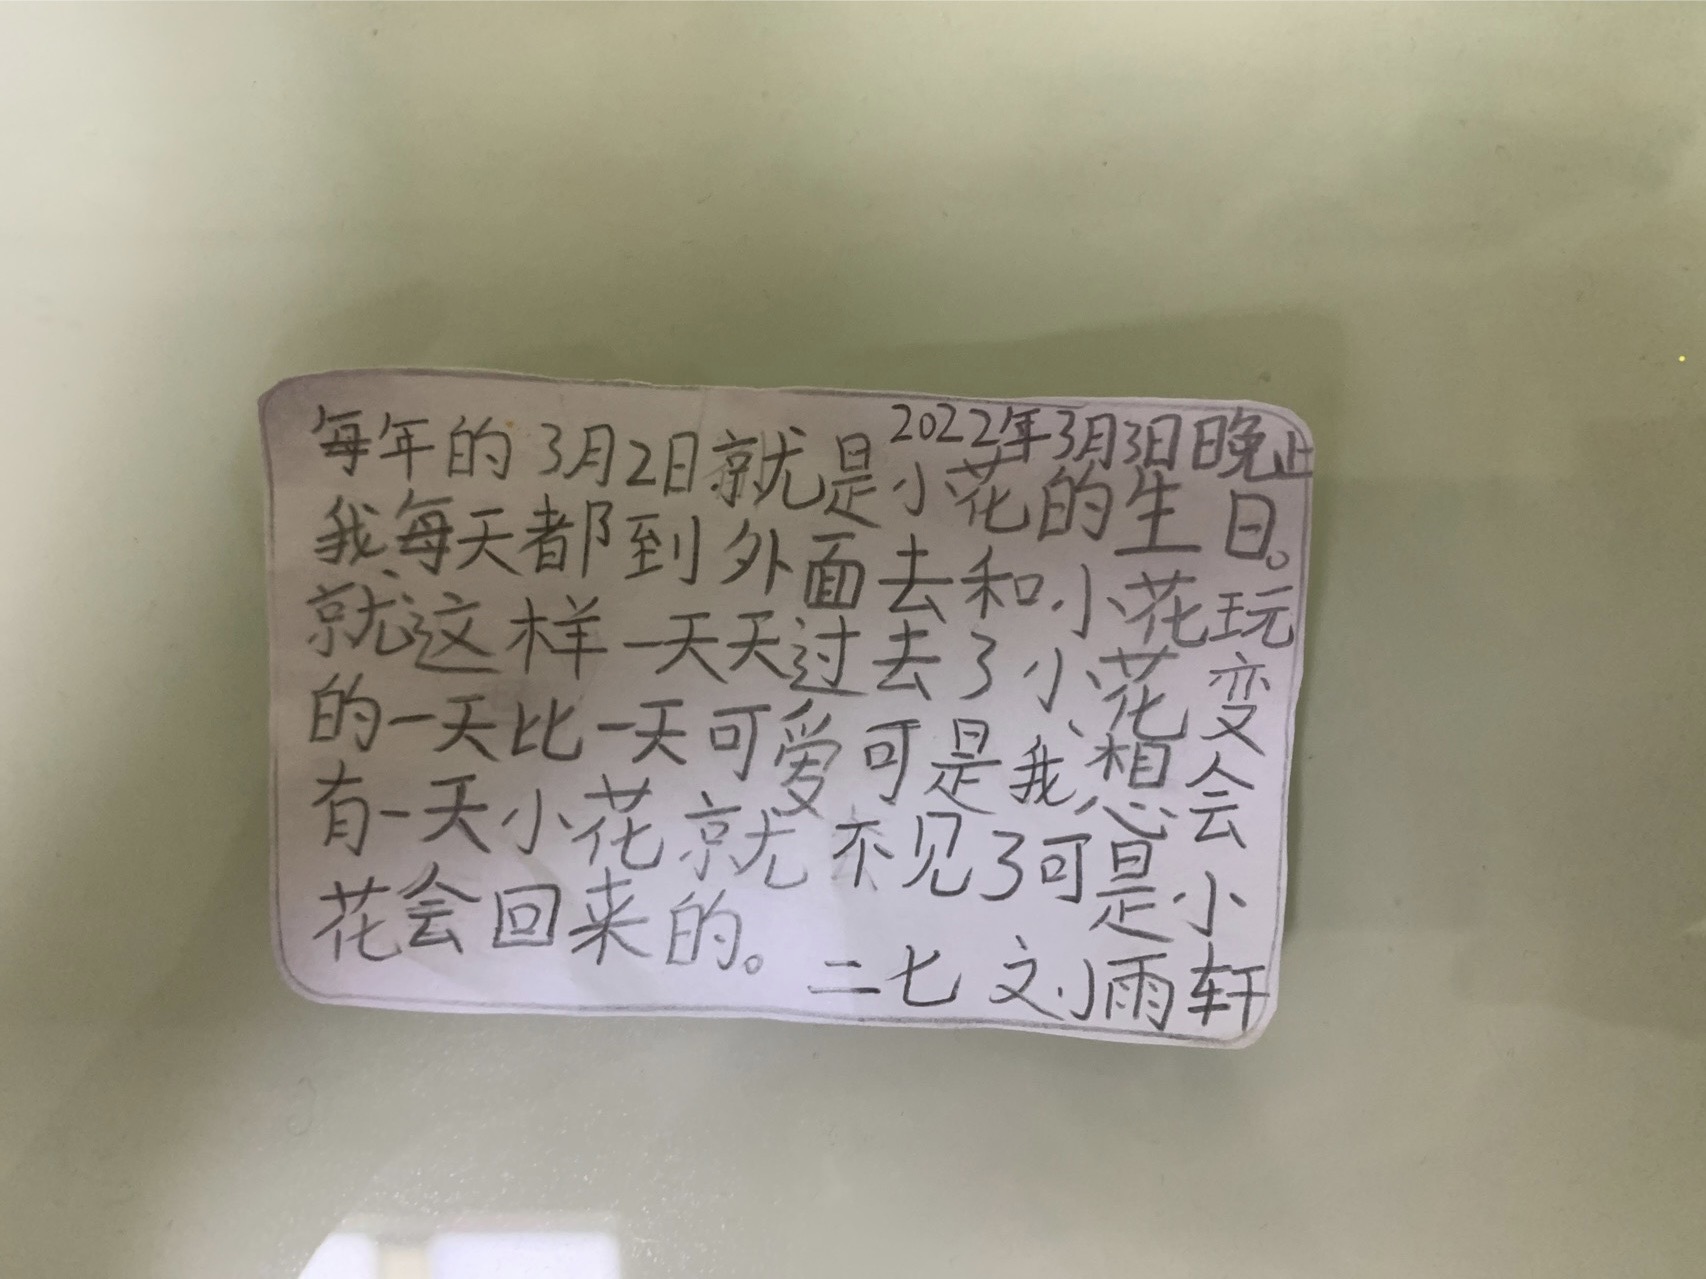 2022年3月3日晚上
每年的3月2日就是小花的生日。
我每天都到外面去和小花玩
就这样一天天过去了小花变
的一天比一天可爱可是我想会
有一天小花就不见了可是小
花会回来的。
二七 刘雨轩